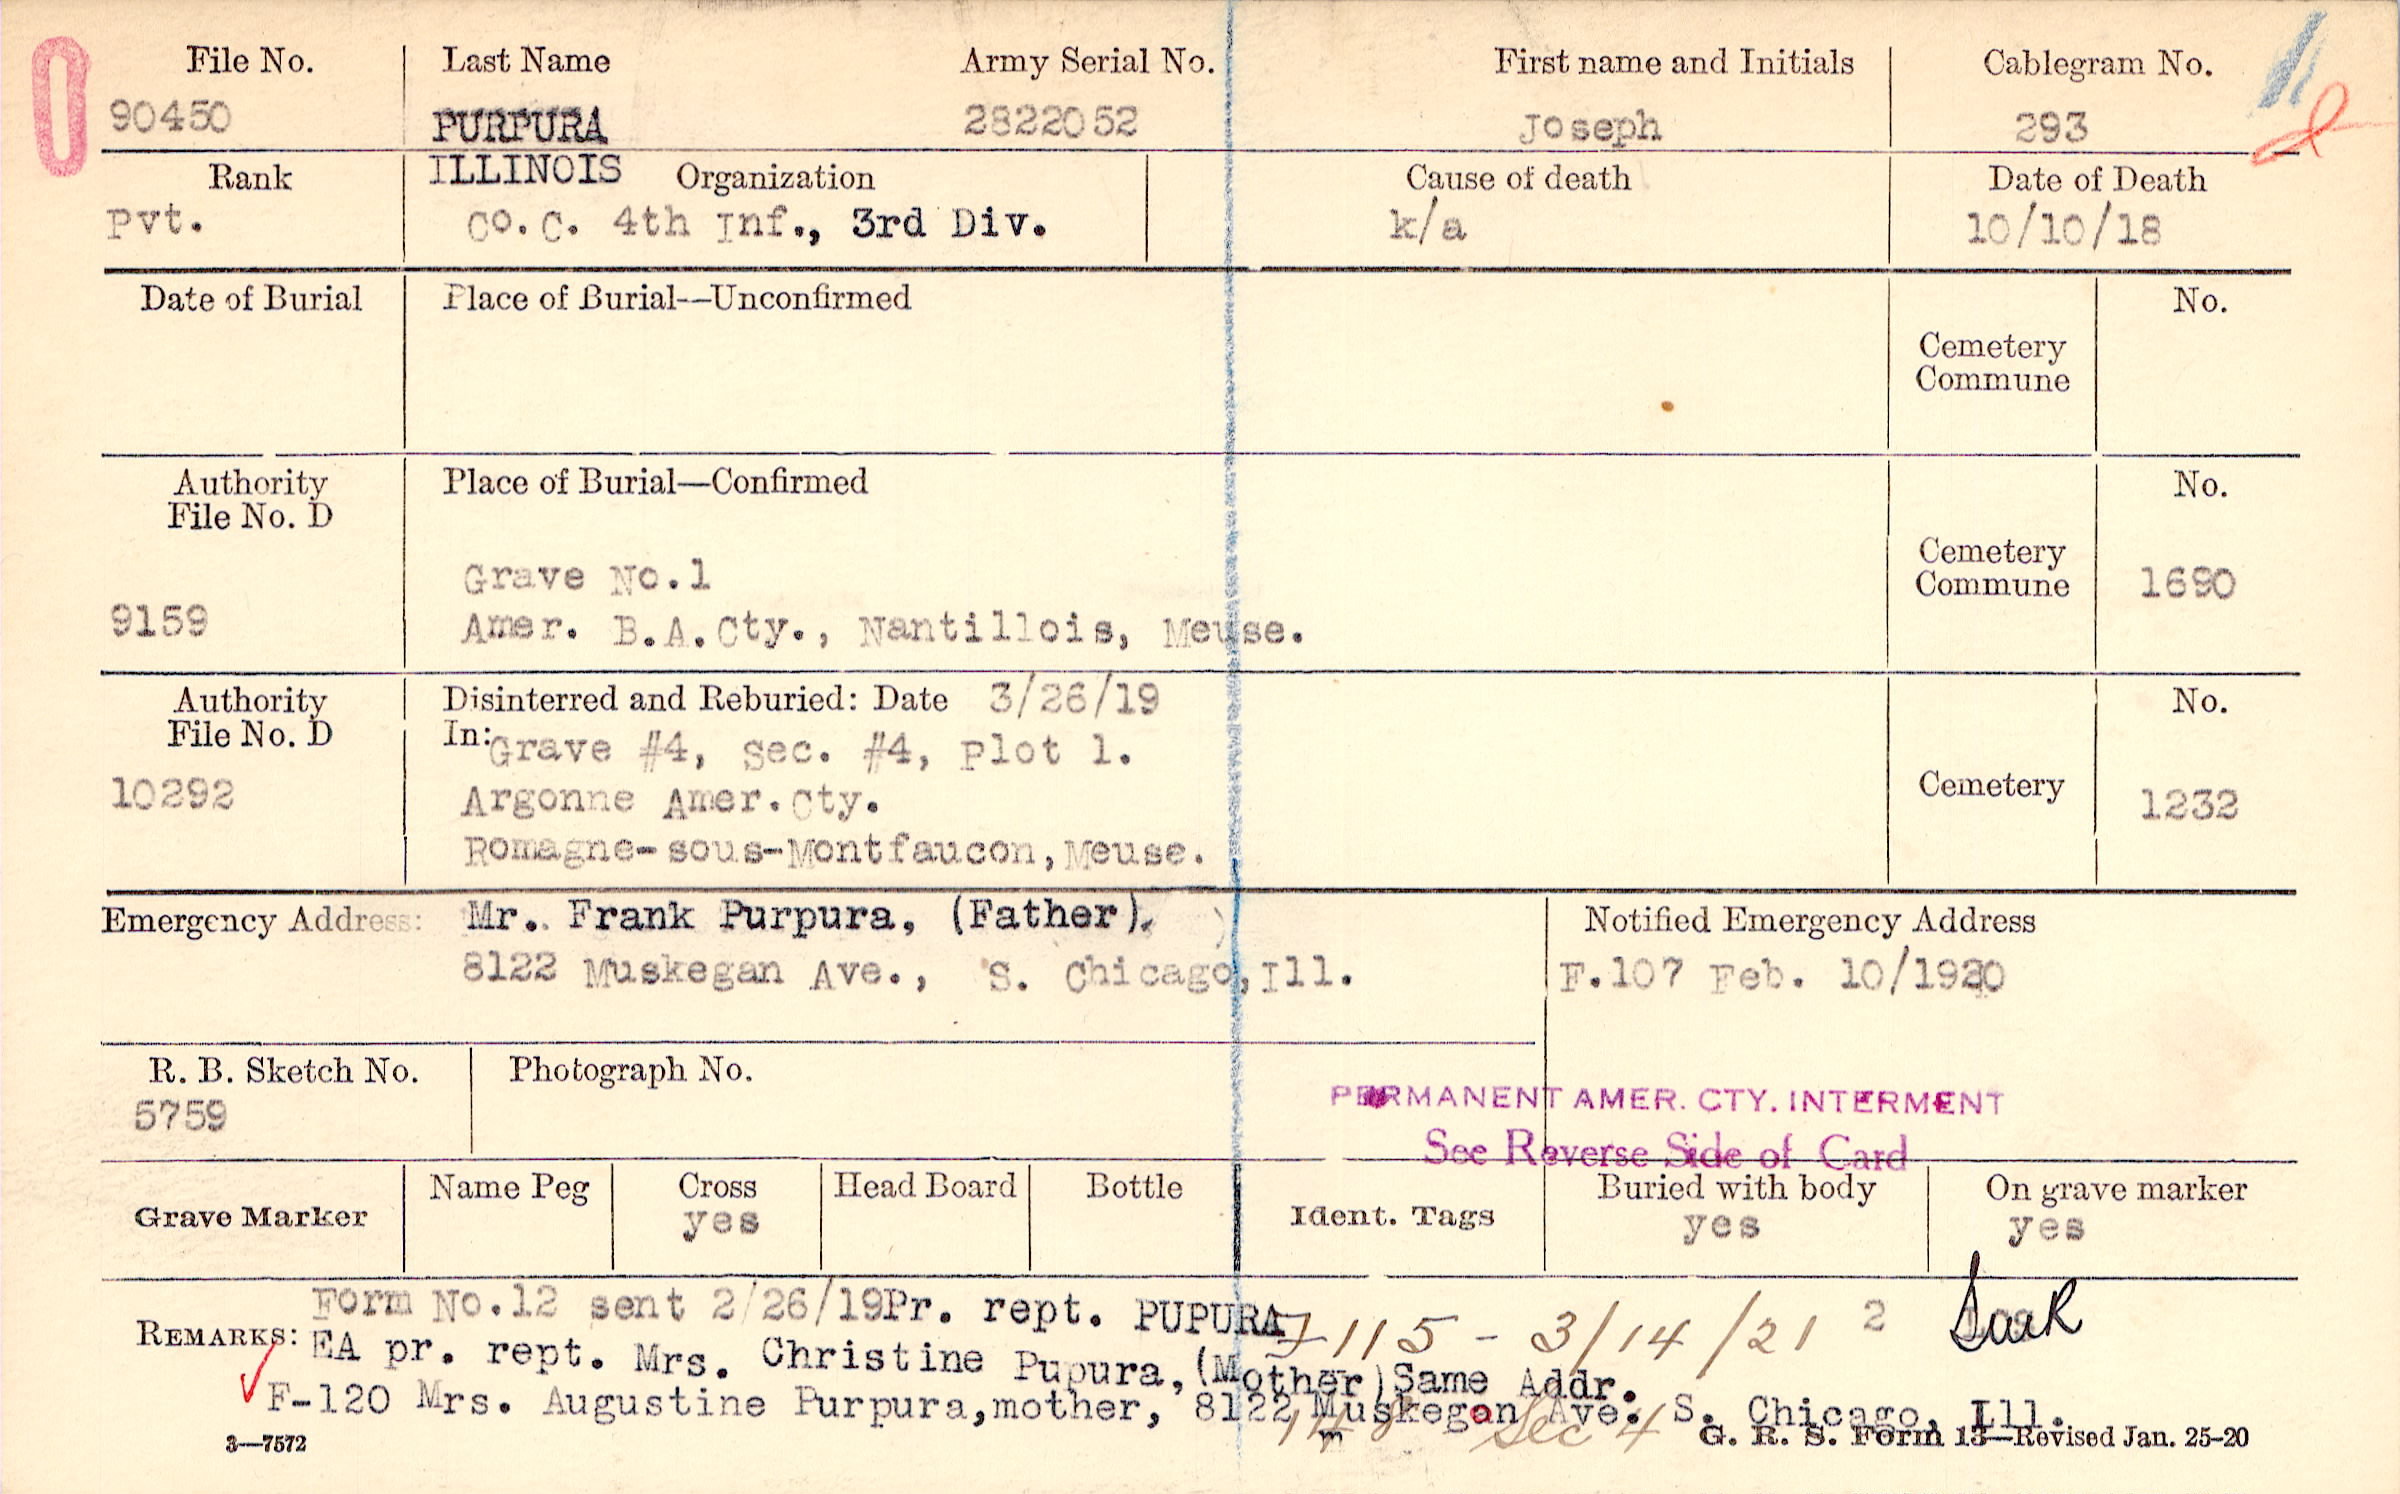 File No. Last Name Army Serial No. First name and Initials Cablegram No.
90450 PURPURA 2822052 Joseph 293
Rank ILLINOIS Organization Cause of death Date of Death
Pvt. Co. C. 4th Inf., 3rd Div. k/a 10/10/18
Date of Burial Place of Burial--Unconfirmed No.
Cemetery
Commune
Authority Place of Burial—Confirmed No.
File No. D
Grave No.1 Cemetery
Commune 1690
9159 Amer. B.A.Cty., Nantillois, Meuse.
Authority Disinterred and Reburied: Date 3/26/19 No.
File No. D In: Grave #4, Sec. #4, Plot 1.
10292 Argonne Amer.Cty. Cemetery 1232
Romagne-sous-Montfaucon, Meuse.
Emergency Address: Mr. Frank Purpura, (Father). Notified Emergency Address
8122 Muskegan Ave., S. Chicago, Ill. F.107 Feb. 10/1920
R. B. Sketch No. Photograph No.
5759 PERMANENT AMER. CTY. INTERMENT
See Reverse Side of Card
Name Peg Cross Head Board Bottle Buried with body On grave marker
Grave Marker yes Ident. Tags yes yes
Form No.12 sent 2/26/19 Pr. rept. PUPURA 115 - 3/14/21 2
REMARKS: EA pr. rept. Mrs. Christine Pupura, (Mother) Same Addr.
F-120 Mrs. Augustine Purpura, mother, 8122 Muskegon Ave. S. Chicago, Ill.
Sec 4
3—7572 G. R. S. Form 13—Revised Jan. 25-20